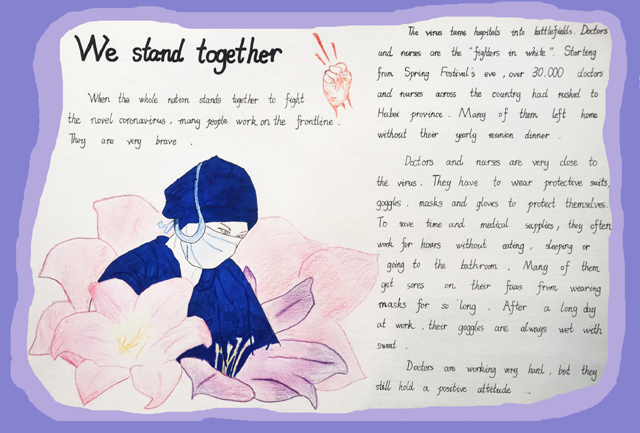 We stand together
When the whole nation stands together to fight
the novel coronavirus, many people work on the frontline.
They are very brave.
The virus turns hospitals into battlefields. Doctors
and nurses are the "fighters in white". Starting
from Spring Festival's eve, over 30.000 doctors
and nurses across the country had rushed to
Hubei province. Many of them left home
without their yearly reunion dinner.
Doctors and nurses are very close to
the virus. They have to wear protective suits,
goggles, masks and gloves to protect themselves.
To save time and medical supplies, they often
work for hours without eating, sleeping or
going to the bathroom. Many of them
get sores on their faces from wearing
masks for so long. After a long day
at work, their goggles are always wet with
sweat.
Doctors are working very hard, but they
still hold a positive attitude.